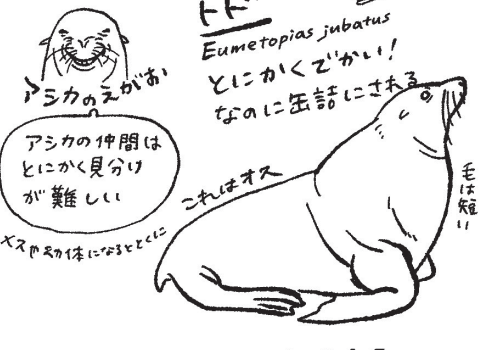 トド
Eumetopias jubatus
とにかくでかい!
なのに缶詰にされる
アシカのえがお
アシカの仲間は
とにかく見分け
が難しい
メスや幼体になるととくに
これはオス
毛は短い